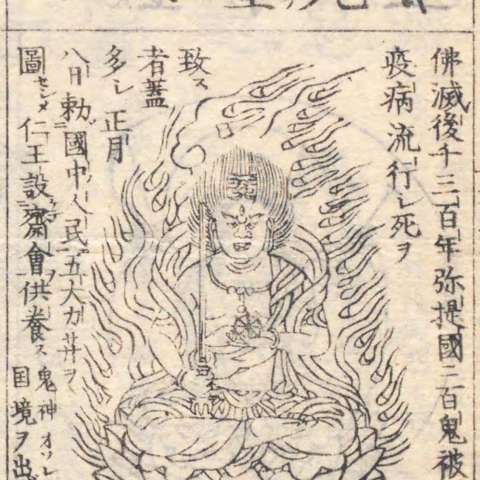 佛滅後千三百年弥提國二百鬼被
疫病流行シ死ヲ
致ス
者蓋
多シ正月
八日勅國中人民五大力𦬇ヲ
圖セシメ仁王設齋會供養ス鬼神オソレ
国境ヲ出